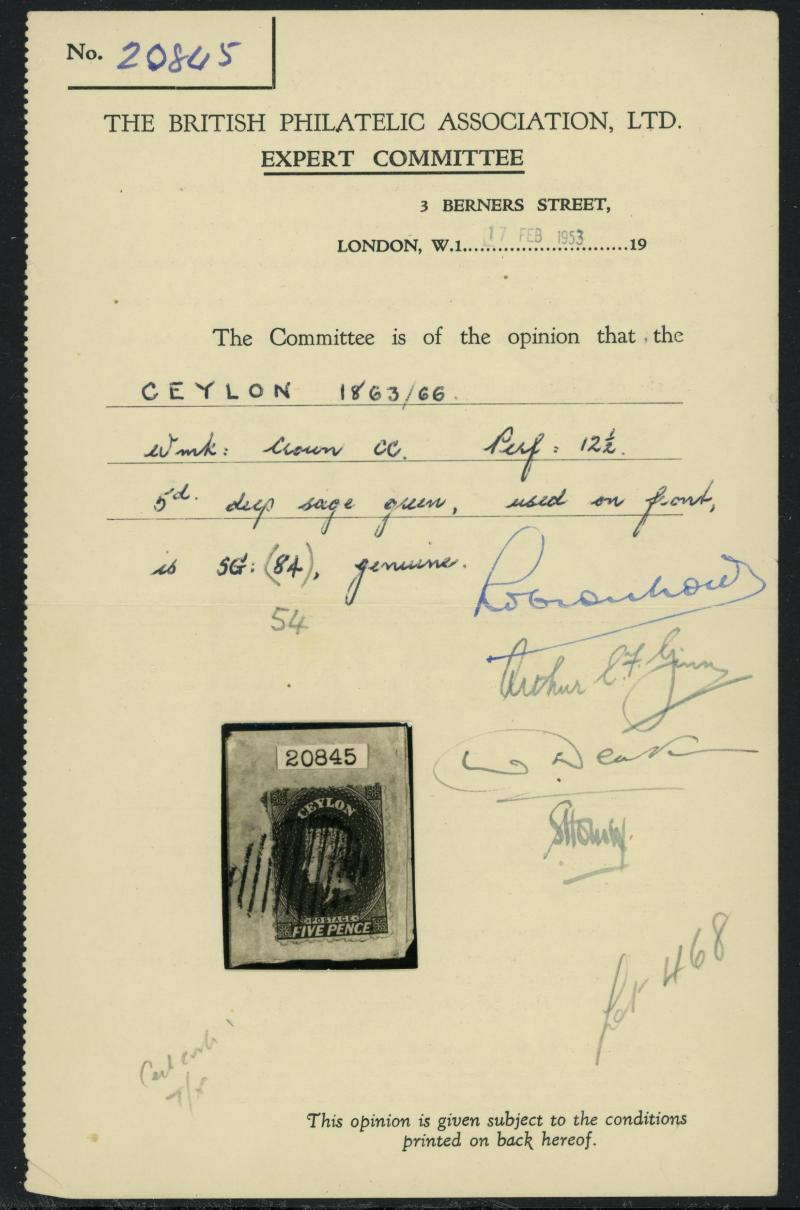 No. 20845
THE BRITISH PHILATELIC ASSOCIATION, LTD.
EXPERT COMMITTEE
3 BERNERS STREET,
LONDON, W.1. 17 FEB 1953 19
The Committee is of the opinion that the
CEYLON 1863/66.
Wmk: Crown CC. Perf: 12½.
5d. deep sage green, used on front,
is SG: (84), genuine.
54
Arthur E.F. Ginn
20845
CEYLON
POSTAGE
FIVE PENCE
Lot 468
This opinion is given subject to the conditions
printed on back hereof.